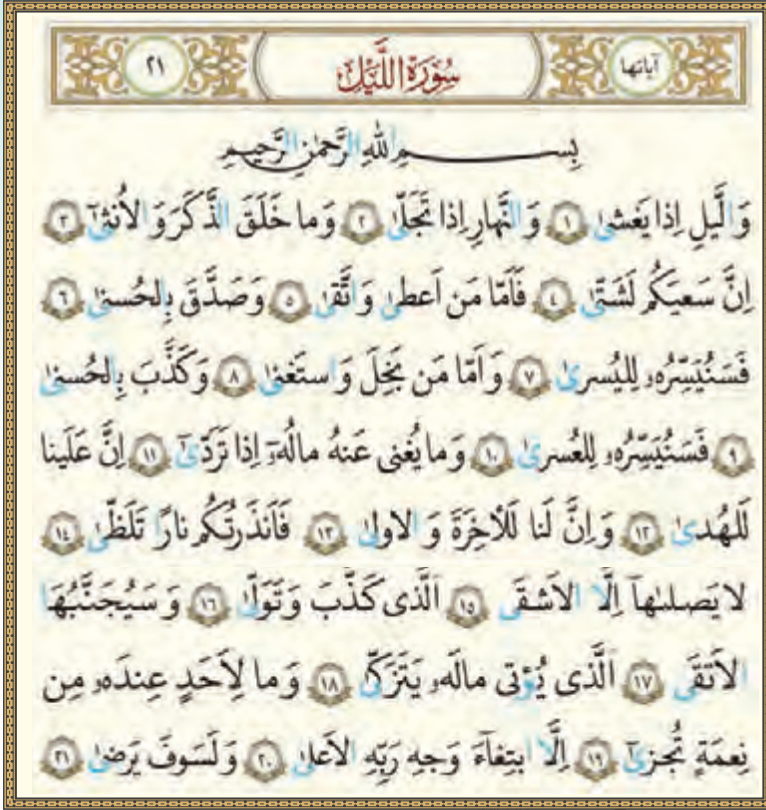 آیاتها سُورَةُ اللَّيْلِ ٢١
بِسمِ اللهِ الرَّحمٰنِ الرَّحیمِ
وَ الَّیلِ اِذا یَغشیٰ ١ وَ النَّهارِ اِذا تَجَلّیٰ ٢ وَ ما خَلَقَ الذَّکَرَ وَ الاُنثیٰٓ ٣
اِنَّ سَعیَکُم لَشَتّیٰ ٤ فَاَمّا مَن اَعطیٰ وَ اتَّقیٰ ٥ وَ صَدَّقَ بِالحُسنیٰ ٦
فَسَنُیَسِّرُهو لِلیُسریٰ ٧ وَ اَمّا مَن بَخِلَ وَ استَغنیٰ ٨ وَ کَذَّبَ بِالحُسنیٰ
٩ فَسَنُیَسِّرُهو لِلعُسریٰ ١٠ وَ ما یُغنی عَنهُ مالُهوٓ اِذا تَرَدّیٰٓ ١١ اِنَّ عَلَینا
لَلهُدیٰ ١٢ وَ اِنَّ لَنا لَلآخِرَةَ وَ الاولیٰ ١٣ فَاَنذَرتُکُم نارًا تَلَظّیٰ ١٤
لا یَصلىٰهآ اِلَّا الاَشقَی ١٥ اَلَّذی کَذَّبَ وَ تَوَلّیٰ ١٦ وَ سَیُجَنَّبُهَا
الاَتقَی ١٧ اَلَّذی یُؤتی مالَهو یَتَزَکّیٰ ١٨ وَ ما لِاَحَدٍ عِندَهو مِن
نِعمَةٍ تُجزیٰٓ ١٩ اِلَّا ابتِغآءَ وَجهِ رَبِّهِ الاَعلیٰ ٢٠ وَ لَسَوفَ یَرضیٰ ٢١